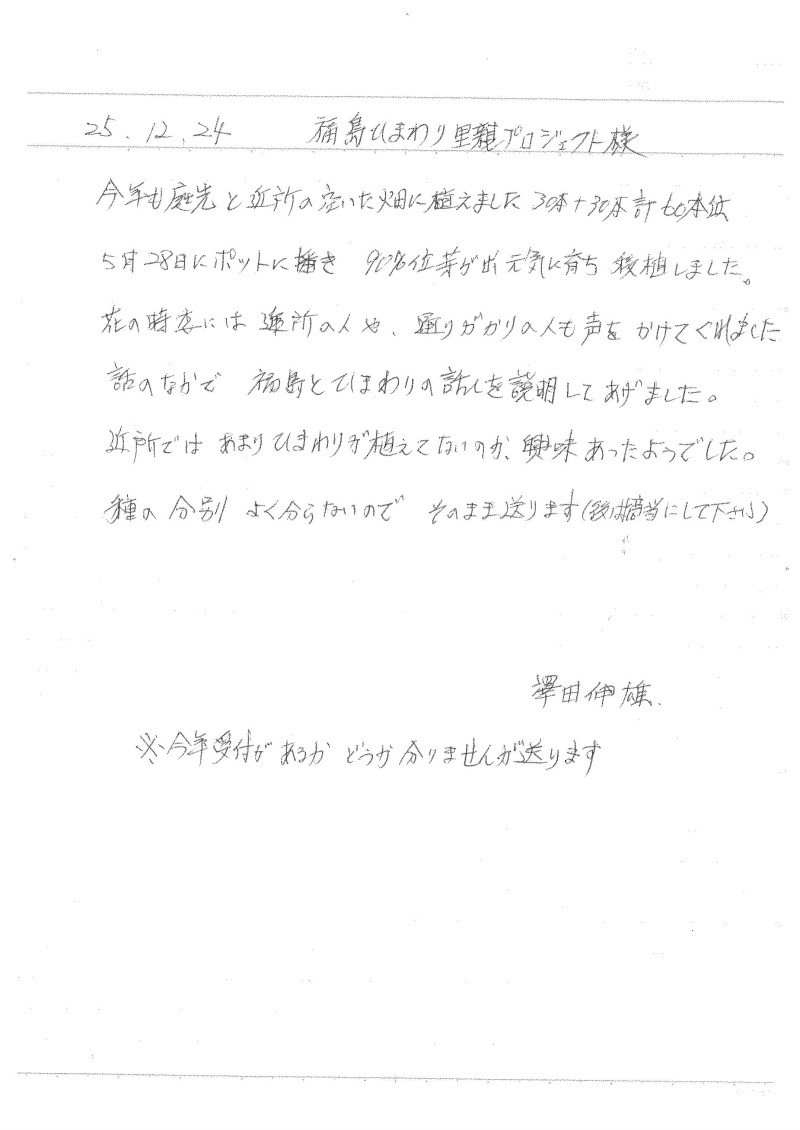 25.12.24 福島ひまわり里親プロジェクト様
今年も庭先と近所の空いた畑に植えました 30本+30本計60本位
5月28日にポットに播き 90%位芽が出元気に育ち 移植しました。
花の時季には近所の人や、通りがかりの人も声をかけてくれました
話のなかで 福島とひまわりの話しを説明してあげました。
近所ではあまりひまわりが植えてないのか、興味あったようでした。
種の分別 よく分らないので そのまま送ります(後は適当にして下さい)
澤田伸雄.
※今年受付があるかどうか分りませんが送ります